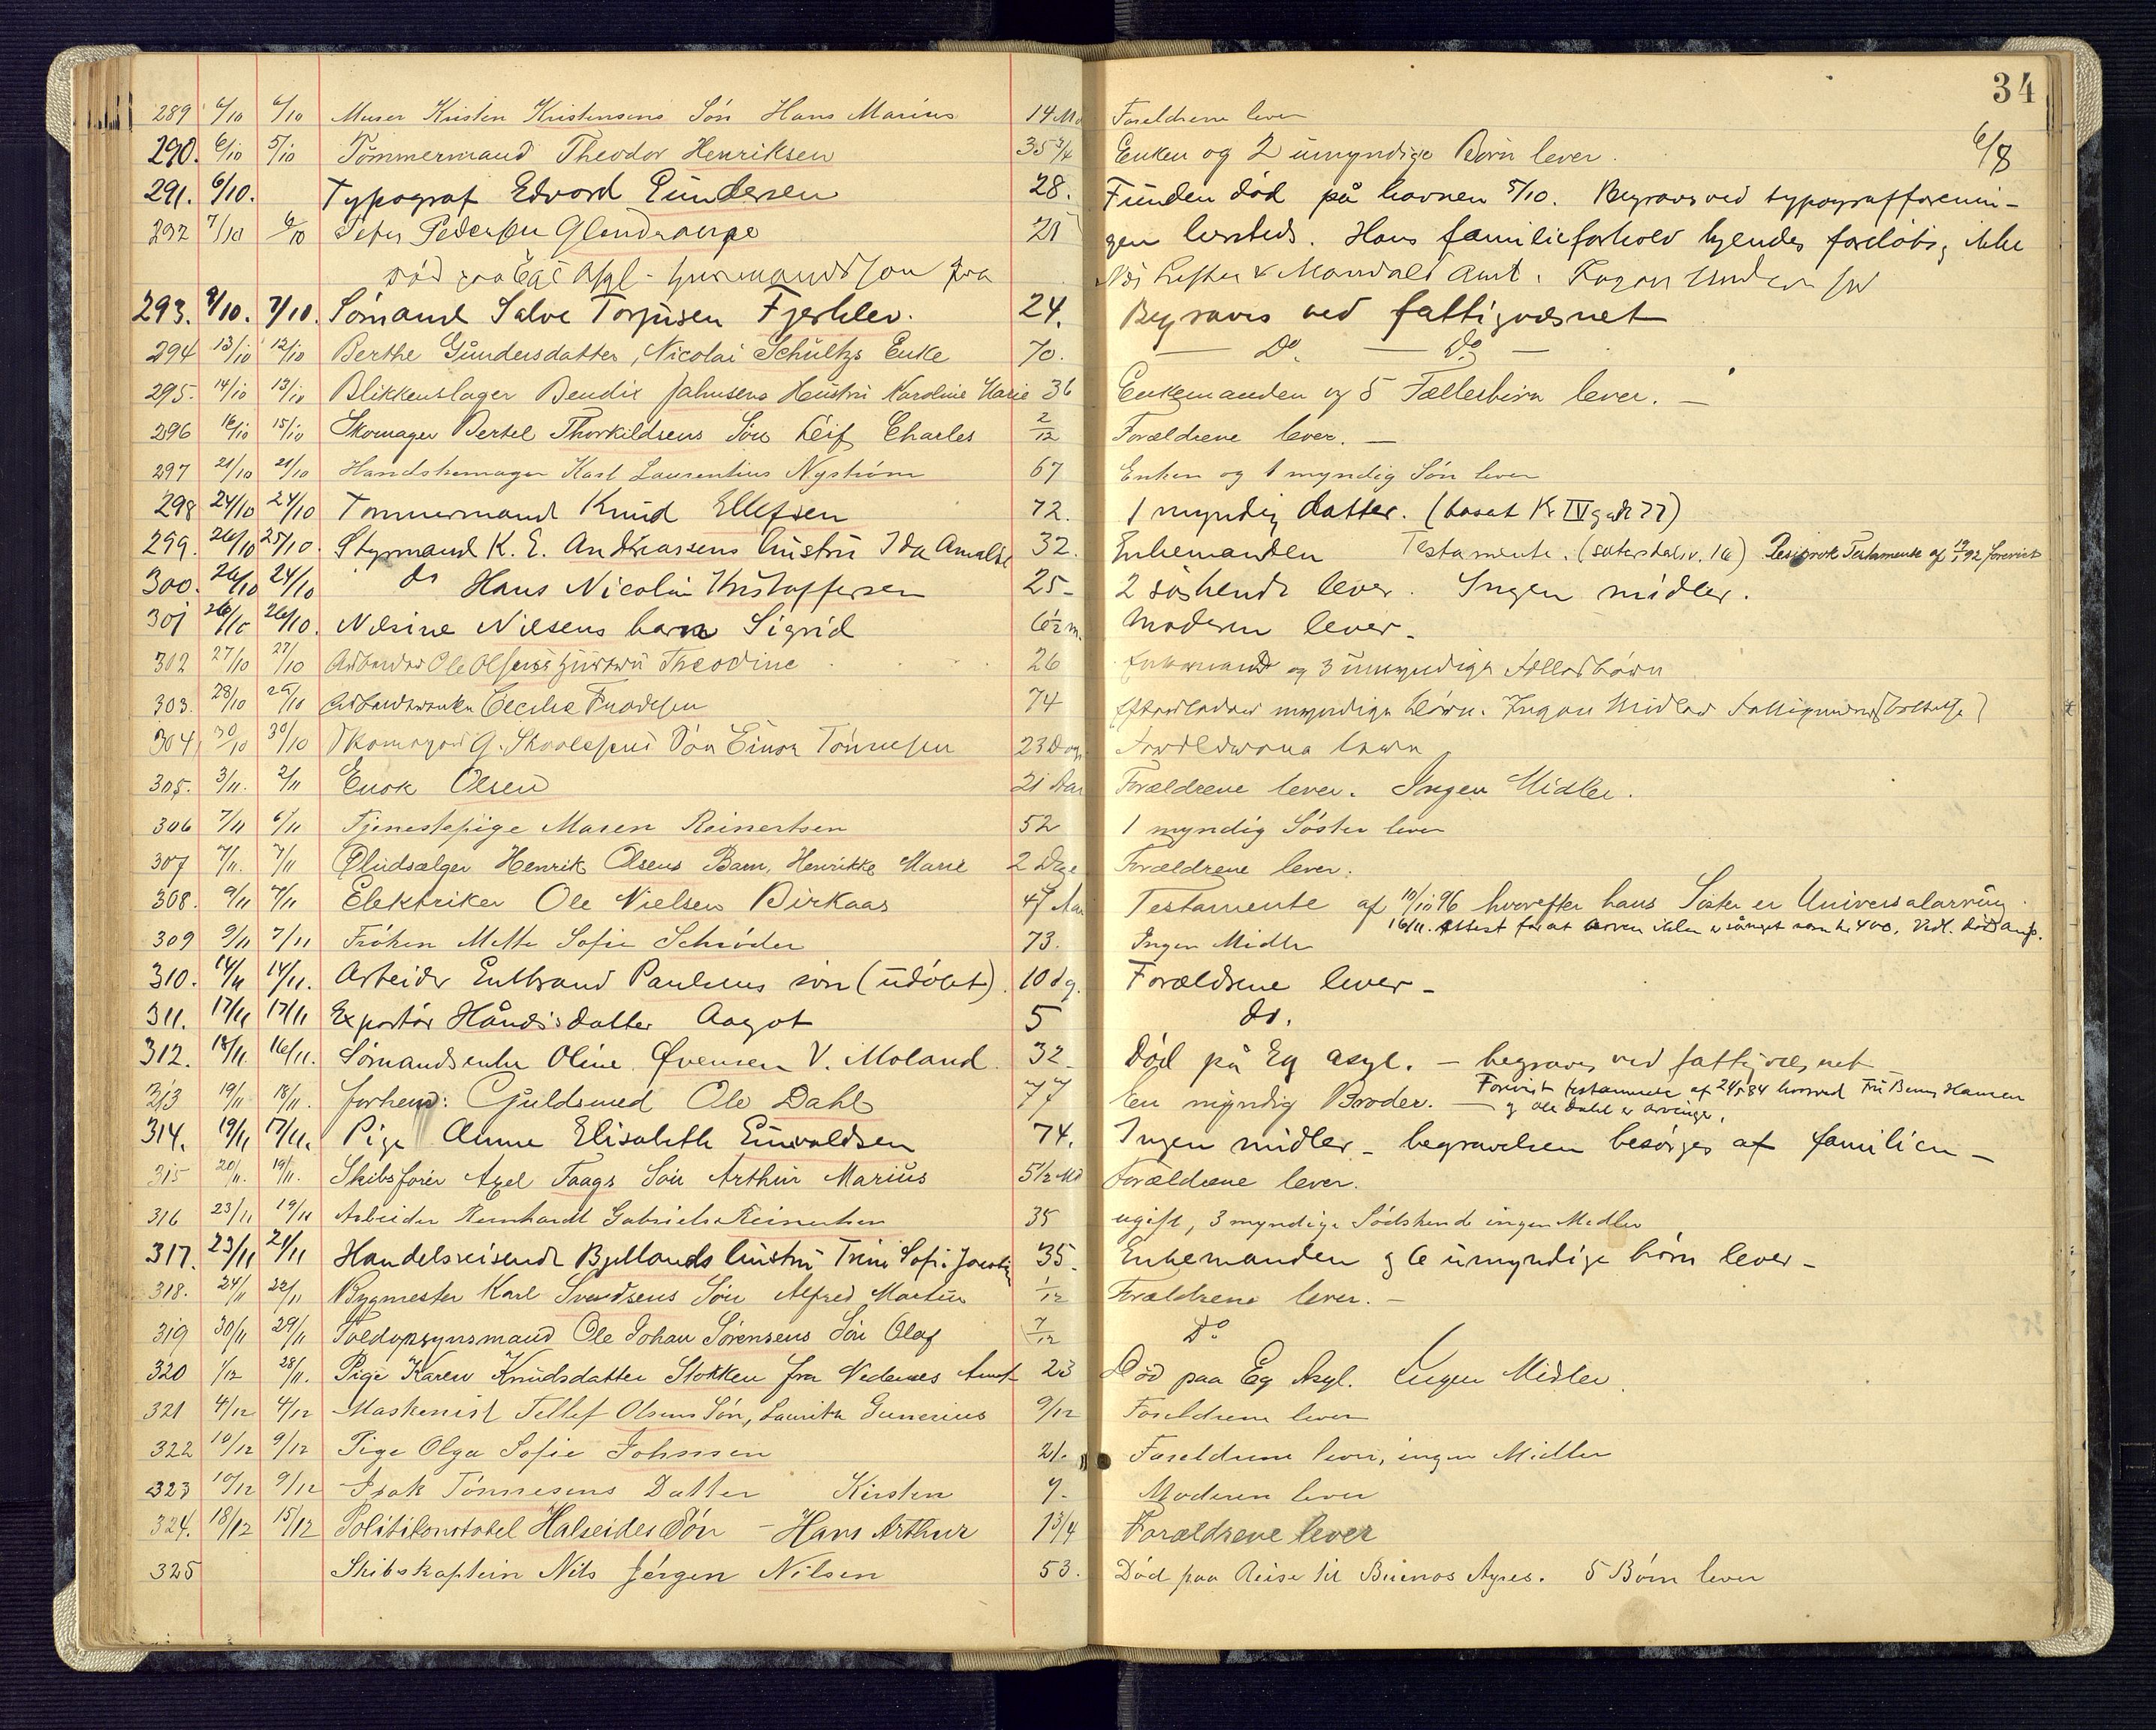 34
289 6/10 6/10 Murer Kristen Kristensens Sön Hans Marius 14 Md Forældrene lever
290. 6/10 5/10 Tømmermand Theodor Henriksen 35 3/4 Enken og 2 umyndige Børn lever. 6/8
291. 6/10. Typograf Edvard Gundersen 28. Funden död på havnen 5/10. Begraves ved typografforenin-
292 7/10 6/10 Peter Pedersen 21 gen hersteds. Hans familieforhold kjendes foreløbig ikke
død paa Egs Asyl - fra & Mandals Amt.
293. 8/10. 7/10. Sömand Salve Torjusen 24. Begraves ved fattigvæsnet
294 13/10 12/10 Berthe Gundersdatter, Nicolai Schultz's Enke 70. Do. Do.
295. 14/10 13/10 Blikkenslager Bendix Jahnsens Hustru Karoline Marie 36 Enkemanden og 5 Fællesbörn lever.
296 16/10 15/10 Skomager Bertel Thorkildsens Sön Leif Charles 2/12 Forældrene lever.
297 21/10 21/10 Handskemager Karl Laurentius Nyström 67 Enken og 1 myndig Sön lever
298 24/10 24/10 Tømmermand Knud Ellefsen 72. 1 myndig datter. (boset Kr IV gade 77)
299. 26/10 25/10. Styrmand K. E. Andreassens hustru Ida Amalie 32. Enkemanden Testamente. (sætersdalsv. 16) Resiprok Testamente af 92 forevist
300. 26/10 24/10 do Hans Nicolai Kristoffersen 25- 2 söskende lever. Ingen midler.
301 26/10 26/10. Nilsine Nilsens barn Sigrid 6 1/2 m. Moderen lever.
302 27/10 27/10 Arbeider Ole Olsens Hustru Theodine 26 Enkemand og 3 umyndige Fællesbörn
303. 28/10 Cecilie 74 Efterlader myndige börn. Ingen Midler
304 30/10 30/10 Skomager G. Sön Einar Tönnesen 23 Dage Forældrene lever
305. 3/11. 2/11 Enok Olsen 21 Aar Forældrene lever. Ingen Midler.
306 7/11 6/11 Tjenestepige Maren Reinertsen 52 1 myndig Söster lever
307 7/11. 7/11 Henrik Olsens Barn, Henrikke Marie 2 Dage Forældrene lever.
308. 9/11 7/11 Elektriker Ole Nielsen Birkaas 47 Aar Testamente af 10/10 96 hvorefter hans Söster er Universalarving.
16/11. Attest for at arven ikke er så meget som kr 400. Vidl.
309 9/11 7/11 Fröken Mette Sofie Schröder 73. Ingen Midler
310. 14/11 14/11. Arbeider Enbrand Paulsens sön (udöbt). 10 dg. Forældrene lever -
311. 17/11 17/11 Exportör datter Aagot 5 do.
312. 18/11. 16/11. Sömandsenke Oline Øvensen V. Moland. 32 Död på Eg asyl. - begraves ved fattigvæsnet
313 19/11 18/11. forhenv: Guldsmed Ole Dahl 77 En myndig Broder. - Forevist testamente af 24/5 84 hvorved Fru Hansen
og Ole Dahl er arvinger.
314. 19/11 17/11. Pige Anne Elisabeth Enevaldsen 74. Ingen midler - begravelsen besörges af familien -
315 20/11. 19/11. Skibsförer Axel Taags Sön Arthur Marius 5 1/2 Md Forældrene lever.
316 23/11 19/11 Arbeider Bernhardt Gabriels Reinertsen 35 ugift, 3 myndige Södskende ingen Midler
317. 23/11 21/11 Handelsreisende Bjellands hustru Trine Sofie 35. Enkemanden og 6 umyndige børn lever -
318. 24/11 22/11 Bygmester Karl Svendsens Sön Alfred Martin 1/12 Forældrene lever. -
319 30/11 29/11 Toldopsynsmand Ole Johan Sörensens Sön Olaf 7/12 Do
320 1/12 28/11. Pige Karen Knudsdatter Stokken fra Nedenes Amt 23 Död paa Eg Asyl. Ingen Midler.
321 4/12 4/12 Maskenist Tellef Olsens Sön, Lauritz Gunerius 9/12 Forældrene lever
322 10/12 9/12 Pige Olga Sofie Johnsen 21. Forældrene lever, ingen Midler
323 10/12 9/12 Isak Tönnesens Datter Kirsten 7. Moderen lever
324. 18/12 15/12 Politikonstabel Halseides Sön - Hans Arthur 1 3/4 Forældrene lever
325 Skibskaptein Nils Jörgen Nilsen 53. Död paa Reise til Buenos Ayres. 5 Börn lever